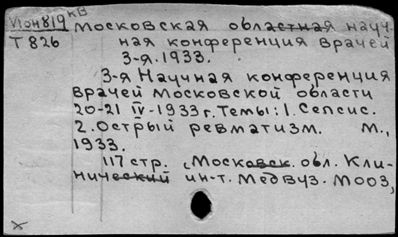 VI он 819 кв
Московская областная науч-
Т 826
ная конференция врачей
3-я. 1933.
3-я Научная конференция
врачей Московской области
20-21 IV-1933 г. Темы: 1. Сепсис.
2. Острый ревматизм. М.,
1933.
117 стр. (Московск. обл. Кли-
нический ин-т. Медвуз. МООЗ,